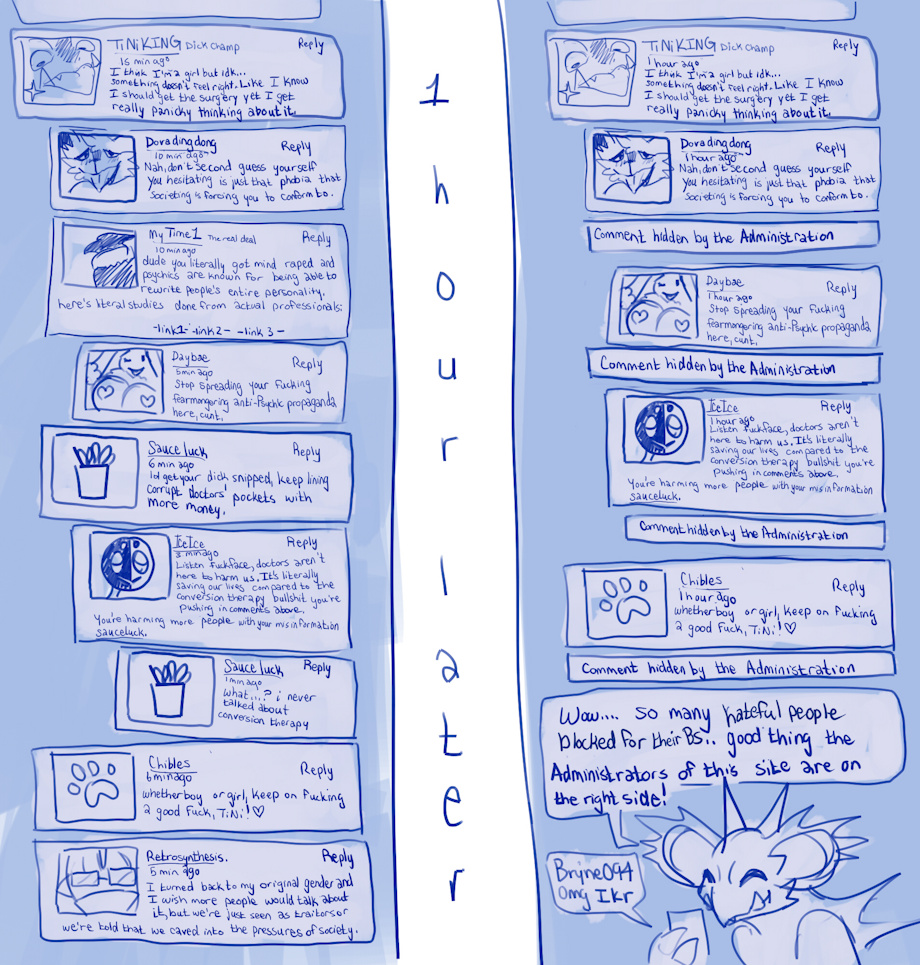 TiNiKING Dick Champ Reply
15 min ago
I think I'm a girl but idk...
something doesn't feel right. Like I know
I should get the surgery yet I get
really panicky thinking about it.
Doradingdong Reply
10 min ago
Nah, don't second guess yourself
You hesitating is just that phobia that
societing is forcing you to conform to.
My Time1 The real deal Reply
10 min ago
dude you literally got mind raped and
psychics are known for being able to
rewrite people's entire personality.
here's literal studies done from actual professionals:
-link1- -link2- -link 3-
Daybae Reply
5 min ago
Stop spreading your fucking
fearmongering anti-Psychic propaganda
here, cunt.
Sauceluck Reply
6 min ago
Id get your dick snipped, keep lining
corrupt doctors' pockets with
more money.
IceIce Reply
3 min ago
Listen fuckface, doctors aren't
here to harm us. It's literally
saving our lives compared to the
conversion therapy bullshit you're
pushing in comments above.
You're harming more people with your misinformation
sauceluck.
Sauceluck Reply
1 min ago
what....? i never
talked about
conversion therapy
Chibles Reply
6 min ago
whether boy or girl, keep on fucking
a good fuck, TiNi!♡
Retrosynthesis. Reply
5 min ago
I turned back to my original gender and
I wish more people would talk about
it, but we're just seen as traitors or
we're told that we caved into the pressures of society.
1 hour later
TiNiKING Dick Champ Reply
1 hour ago
I think I'm a girl but idk...
something doesn't feel right. Like I know
I should get the surgery yet I get
really panicky thinking about it.
Doradingdong Reply
1 hour ago
Nah, don't second guess yourself
You hesitating is just that phobia that
societing is forcing you to conform to.
Comment hidden by the Administration
Daybae Reply
1 hour ago
Stop spreading your fucking
fearmongering anti-Psychic propaganda
here, cunt.
Comment hidden by the Administration
IceIce Reply
1 hour ago
Listen fuckface, doctors aren't
here to harm us. It's literally
saving our lives compared to the
conversion therapy bullshit you're
pushing in comments above.
You're harming more people with your misinformation
sauceluck.
Comment hidden by the Administration
Chibles Reply
1 hour ago
whether boy or girl, keep on fucking
a good fuck, TiNi!♡
Comment hidden by the Administration
Wow.... so many hateful people
blocked for their BS.. good thing the
Administrators of this site are on
the right side!
Bryne094
Omg Ikr